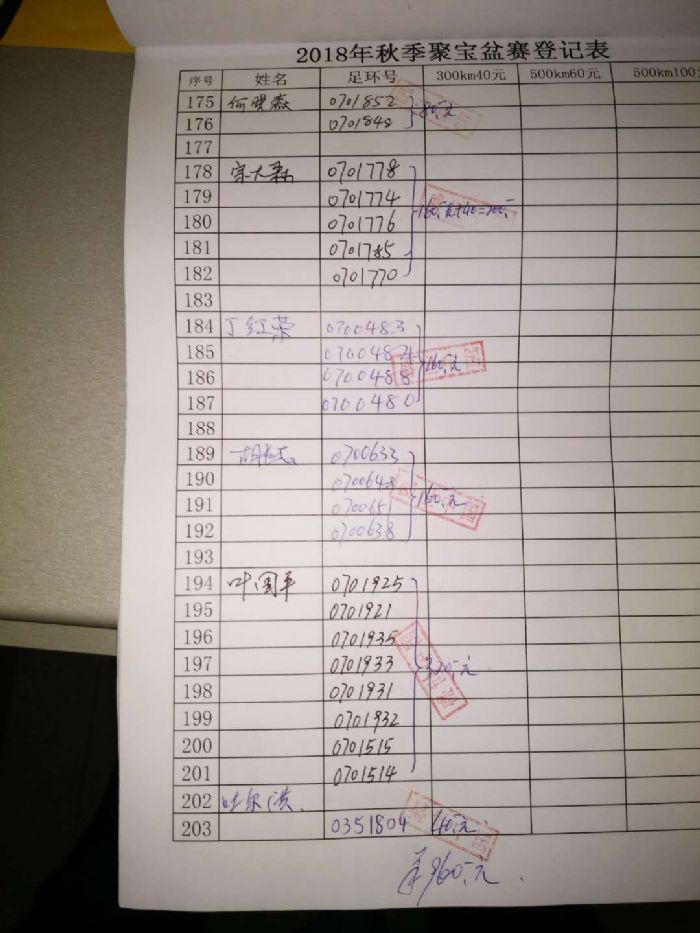 2018年秋季聚宝盆赛登记表
序号 姓名 足环号 300km40元 500km60元 500km100元
175 何 0701852 80元
176 0701848
177
178 宗大 0701778
179 0701774 160元+40=200
180 0701776
181 0701785
182 0701770
183
184 丁红荣 0700483
185 0700484
186 0700488 160元
187 0700480
188
189 胡 0700633
190 0700643
191 0700651 160元
192 0700638
193
194 叶国平 0701925
195 0701921
196 0701935
197 0701933 320元
198 0701931
199 0701932
200 0701515
201 0701514
202 叶尔
203 0351804 40元
960元